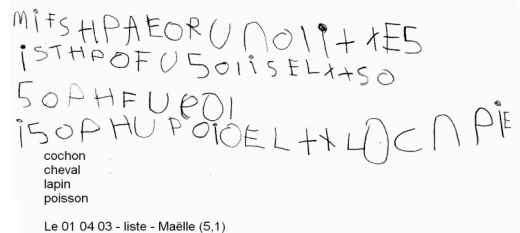 MifSHPAEORUNO1i+xE5
iSTHPOFU5O1iSELX+SO
5OPHFUeO1
i5OPHUPOiOEL+XLOCNPiE
cochon
cheval
lapin
poisson
Le 01 04 03 - liste - Maëlle (5,1)